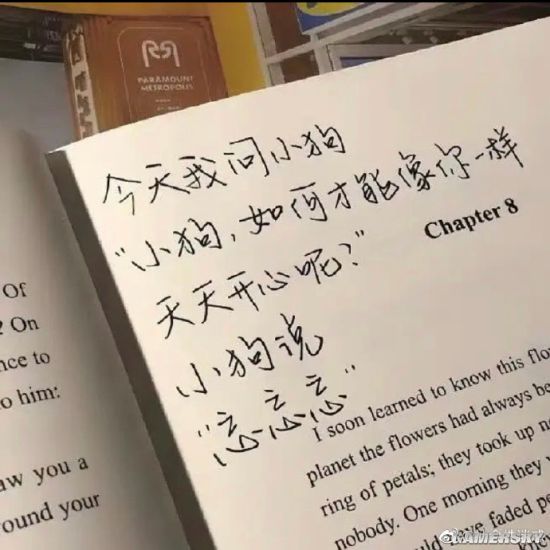 RSN
PARAMOUNT
METROPOLIS
今天我问小狗
“小狗,如何才能像你一样
天天开心呢?”
小狗说
“忘忘忘”
Of
? On
nce to
o him:
aw you a
round your
Chapter 8
I soon learned to know this flow
planet the flowers had always be
ring of petals; they took up no
nobody. One morning they w
faded pe
GAMERSKY